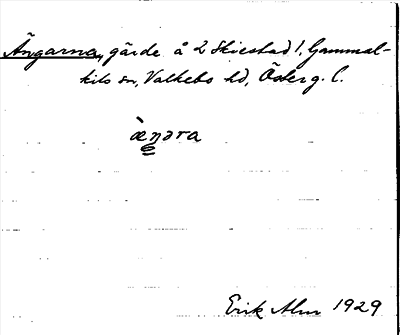 Ängarna, gärde å 2 Skiestad 1, Gammal-
kils sn, Valkebo hd, Österg. l.
`æŋəra
Erik Alm 1929